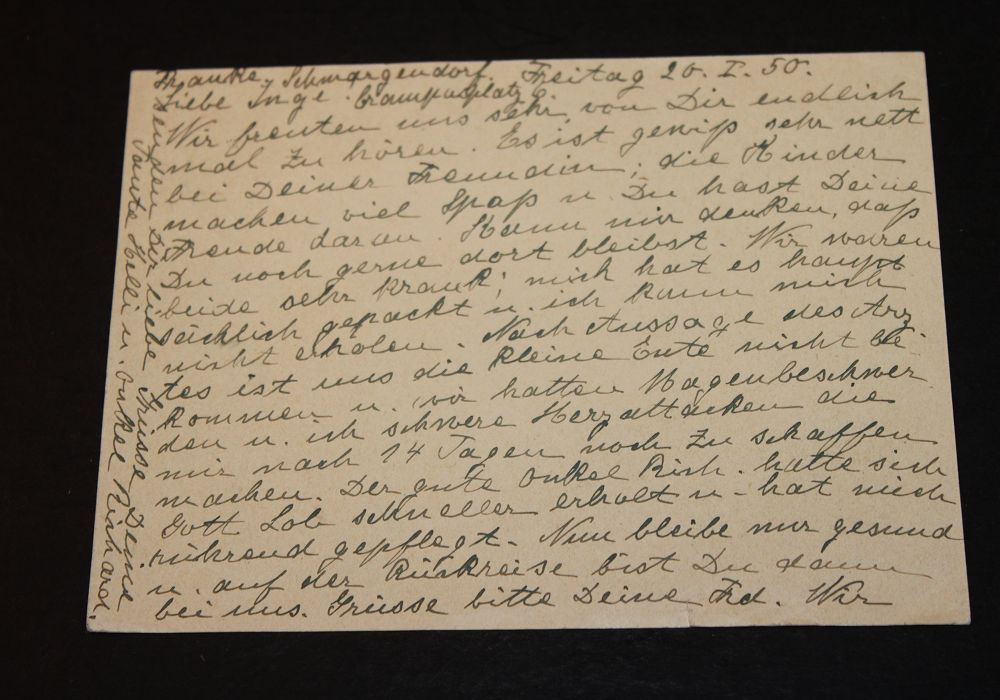 Franke, Schmargendorf. Freitag 20. I. 50.
Liebe Inge. Crampasplatz 6.
Wir freuten uns sehr, von Dir endlich
mal zu hören. Es ist gewiß sehr nett
bei Deiner Freundin, die Kinder
machen viel Spaß u. Du hast Deine
Freude daran. Kann mir denken, daß
Du noch gerne dort bleibst. Wir waren
beide sehr krank; mich hat es haupt
sächlich gepackt u. ich kann mich
nicht erholen. Nach Aussage des Arz
tes ist uns die kleine Ente nicht be
kommen u. wir hatten Magenbeschwer
den u. ich schwere Herzattacken die
mir nach 14 Tagen noch zu schaffen
machen. Der gute Onkel Rich. hatte sich
Gott Lob schneller erholt u. hat mich
rührend gepflegt. Nun bleibe nur gesund
u. auf der Rückreise bist Du dann
bei uns. Grüsse bitte Deine Frd. Wir
senden Dir liebe Grüsse Deine
Tante Helli u. Onkel Richard.